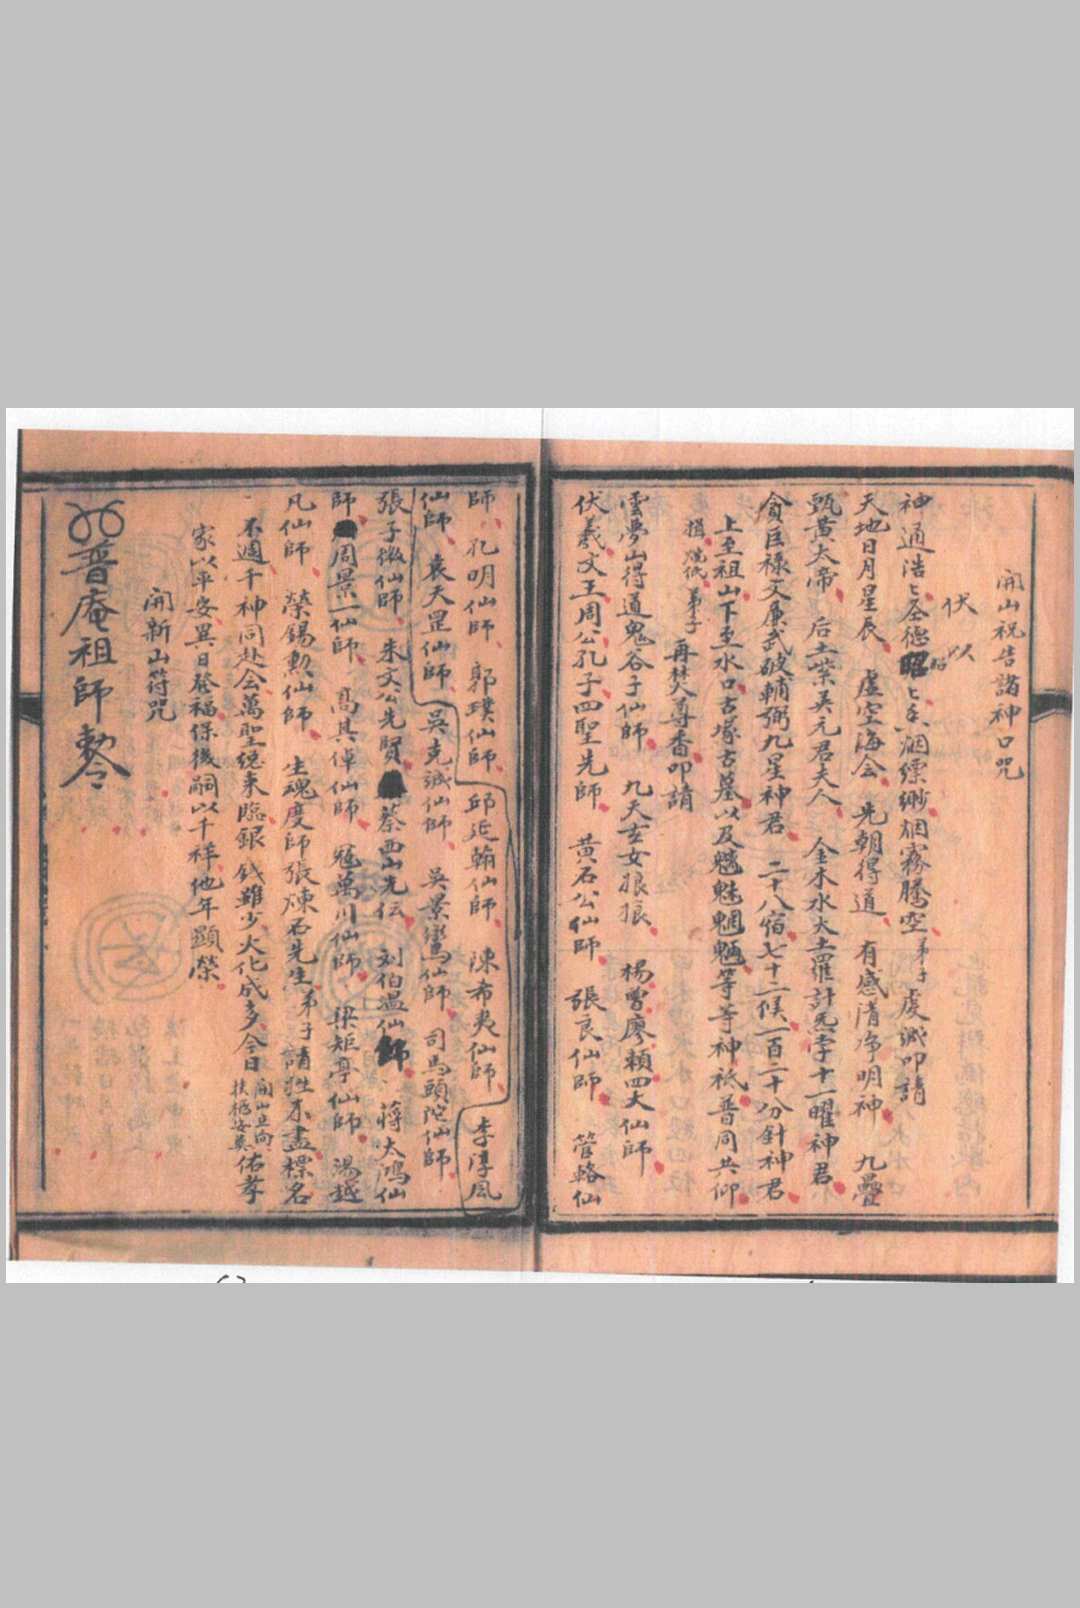 開山祝告諸神口咒
伏以
神通浩〻圣德昭〻香烟縹緲烟霧騰空弟子虔诚叩請
天地日月星辰 虛空海会 先朝得道 有感清净明神 九疊
甄黄太帝 后土紫英元君夫人 金木水火土羅計炁孛十一曜神君
貪巨禄文廉武破輔弼九星神君 二十八宿七十二候一百二十分針神君
上至祖山下至水口古塚古墓以及魑魅魍魎等等神祇普同共仰
揖 燒纸 弟子 再焚尊香叩請
雲夢山得道鬼谷子仙師 九天玄女娘娘 楊曾廖賴四大仙師
伏羲文王周公孔子四聖先師 黄石公仙師 張良仙師 管輅仙
師 孔明仙師 郭璞仙師 邱延翰仙師 陳希夷仙師 李淳风
仙師 袁天罡仙師 吳克诚仙師 吳景鸞仙師 司馬頭陀仙師
張子微仙師 朱文公先贤 蔡西山先伝 刘伯温仙師 蔣大鴻仙
師 周景一仙師 高其倬仙師 冦萬川仙師 梁矩亭仙師 湯越
凡仙師 榮錫勲仙師 生魂度師張煉石先生弟子請姓不盡標名
不週千神同赴会萬聖總来臨銀钱雖少火化成多今日開山立向扶柩安葬佑孝
家以平安異日發福保後嗣以千祥他年顯榮
開新山符咒
普庵祖師勅令